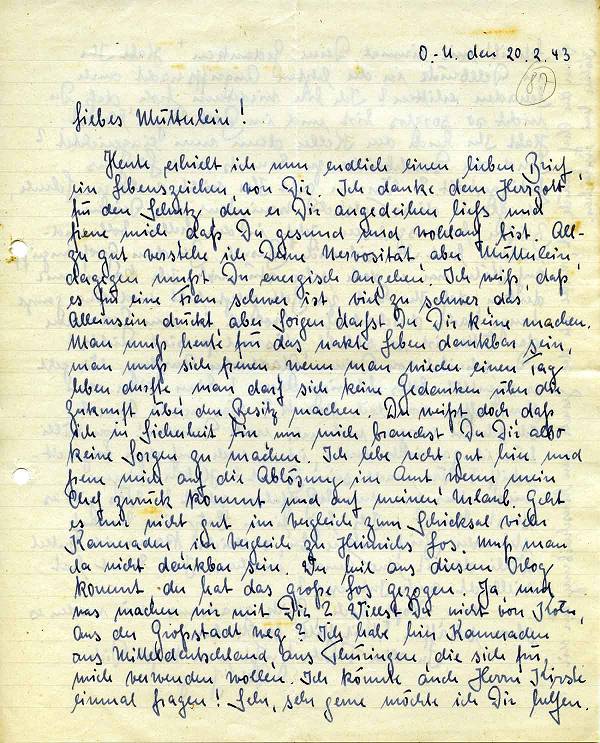 O.-U. den 20.2.43
(87)
Liebes Mütterlein!
Heute erhielt ich nun endlich einen lieben Brief,
ein Lebenszeichen von Dir. Ich danke dem Herrgott
für den Schutz den er Dir angedeihen ließ und
freue mich daß Du gesund und wohlauf bist. All-
zu gut verstehe ich Deine Nervosität aber Mütterlein,
dagegen mußt Du energisch angehen. Ich weiß, daß
es für eine Frau schwer ist viel zu schwer das
Alleinsein drückt, aber Sorgen darfst Du Dir keine machen.
Man muß heute für das nakte Leben dankbar sein,
man muß sich freuen wenn man wieder einen Tag
leben durfte man darf sich keine Gedanken über die
Zukunft über den Besitz machen. Du weißt doch daß
ich in Sicherheit bin um mich brauchst Du Dir also
keine Sorgen zu machen. Ich lebe recht gut hier und
freue mich auf die Ablösung im Amt wenn mein
Chef zurück kommt und auf meinen Urlaub. Geht
es mir nicht gut im Vergleich zum Schicksal vieler
Kameraden, im Vergleich zu Heinrichs Los. Muß man
da nicht dankbar sein. Wer heil aus diesem
kommt der hat das große Los gezogen. Ja und
was machen wir mit Dir? Willst Du nicht von Köln,
aus der Großstadt weg? Ich habe hier Kameraden
aus Mitteldeutschland, aus Thüringen, die sich für
mich verwenden wollen. Ich könnte auch Herrn
einmal fragen! Sehr, sehr gerne möchte ich Dir helfen.